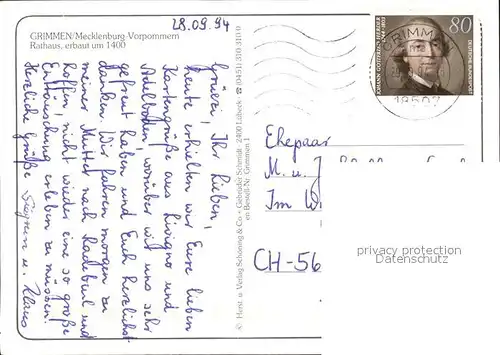 28.09.94
GRIMMEN/Mecklenburg Vorpommern
Rathaus, erbaut um 1400
Ihr Lieben!
Heute erhielten wir Eure lieben
Kartengrüße aus Livigno und
Adelboden, worüber wir uns sehr
gefreut haben und Euch herzlichst
danken. Wir fahren morgen zu
meiner Mutter nach Radebeul und
hoffen, nicht wieder eine so große
Enttäuschung erleben zu müssen!
Herzliche Grüße Sigrun u. Klaus
© Horst u. Verlag Schöning & Co • Gebrüder Schmidt • 2400 Lübeck • ☎ (0451) 310310
Bestell-Nr. Grimmen 1
80
DEUTSCHE BUNDESPOST
JOHANN GOTTFRIED HERDER
1744-1803
GRIMMEN
18507
Ehepaar
M. u. J
Im Wi
CH-56
privacy protection
Datenschutz